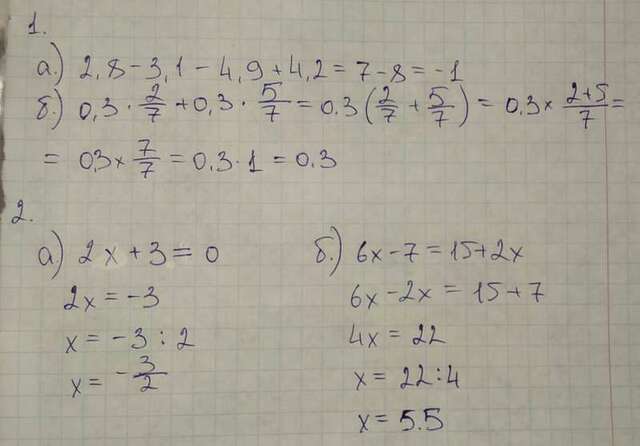 1.
а) 2,8 - 3,1 - 4,9 + 4,2 = 7 - 8 = -1
б) 0,3 · 2/7 + 0,3 · 5/7 = 0.3 (2/7 + 5/7) = 0,3 × (2+5)/7 =
= 0,3 × 7/7 = 0,3 · 1 = 0.3
2.
а) 2x + 3 = 0
2x = -3
x = -3 : 2
x = -3/2
б) 6x - 7 = 15 + 2x
6x - 2x = 15 + 7
4x = 22
x = 22 : 4
x = 5.5